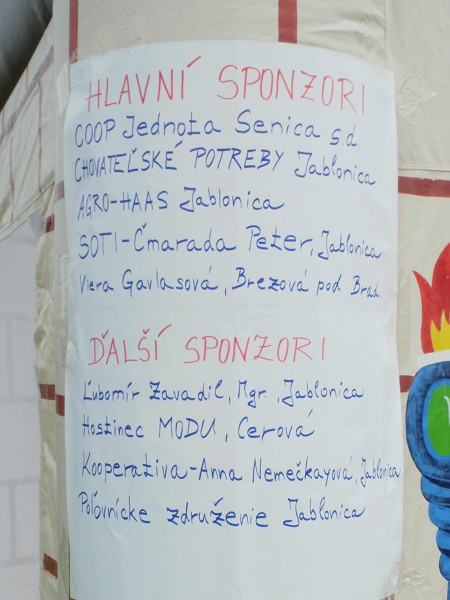 HLAVNÍ SPONZORI
COOP Jednota Senica s.d
CHOVATEĽSKÉ POTREBY Jablonica
AGRO-HAAS Jablonica
SOTI-Čmarada Peter, Jablonica
Viera Gavlasová, Brezová pod Brad
ĎALŠÍ SPONZORI
Ľubomír Zavadil, Mgr., Jablonica
Hostinec MODU, Cerová
Kooperatíva-Anna Nemečkayová, Jablonica
Poľovnícke združenie Jablonica